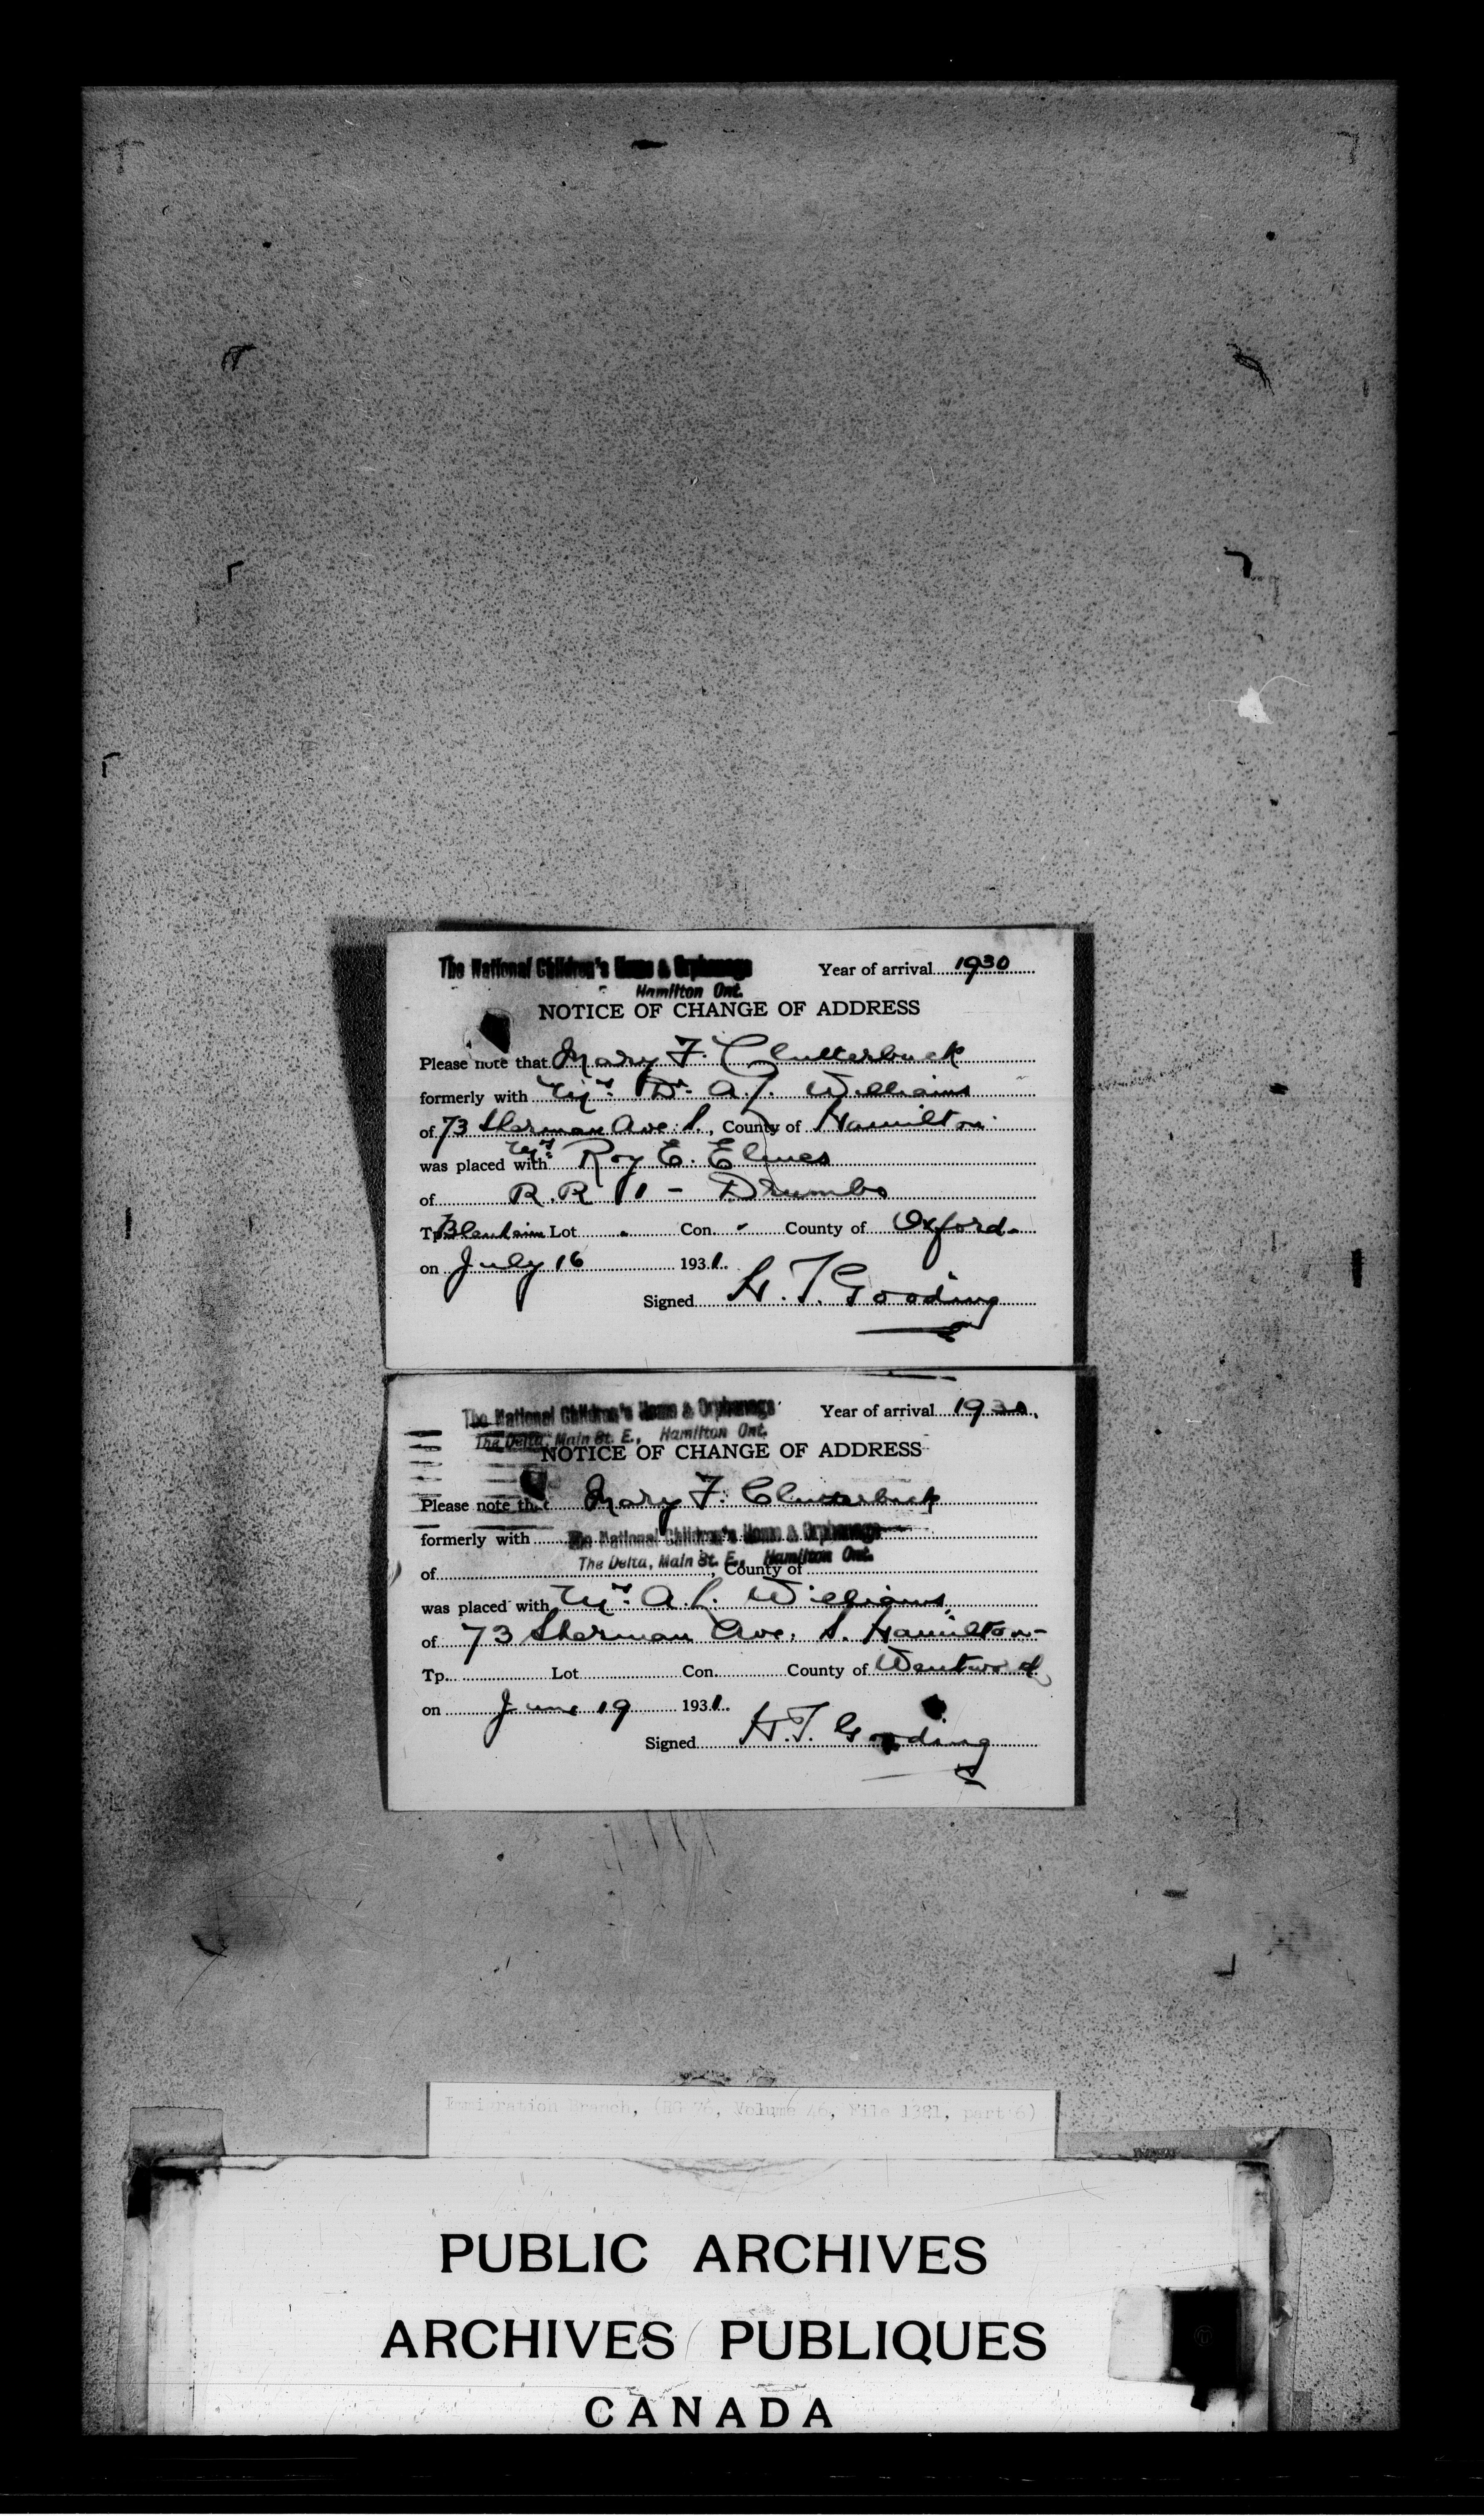 The National Children's Home & Orphanage Year of arrival 1930
Hamilton Ont.
NOTICE OF CHANGE OF ADDRESS
Please note that Mary F. Clutterbuck
formerly with Mrs. Dr. A. J. Williams
of 73 Sherman Ave. S., County of Hamilton
was placed with Mrs. Roy E. Elmes
of R.R 1 - Drumbo
Tp. Blenheim Lot - Con. - County of Oxford.
on July 16 1931.
Signed H. T. Gooding
The National Children's Home & Orphanage Year of arrival 1930.
The Delta, Main St. E., Hamilton Ont.
NOTICE OF CHANGE OF ADDRESS
Please note that Mary F. Clutterbuck
formerly with The National Children's Home & Orphanage
The Delta, Main St. E., Hamilton Ont.
of , County of
was placed with Mrs. A. Williams,
of 73 Sherman Ave. S. Hamilton-
Tp. Lot Con. County of Wentworth
on June 19 1931.
Signed H. T. Gooding
Immigration Branch, (RG 76, Volume 46, File 1381, part 6)
PUBLIC ARCHIVES
ARCHIVES PUBLIQUES
CANADA